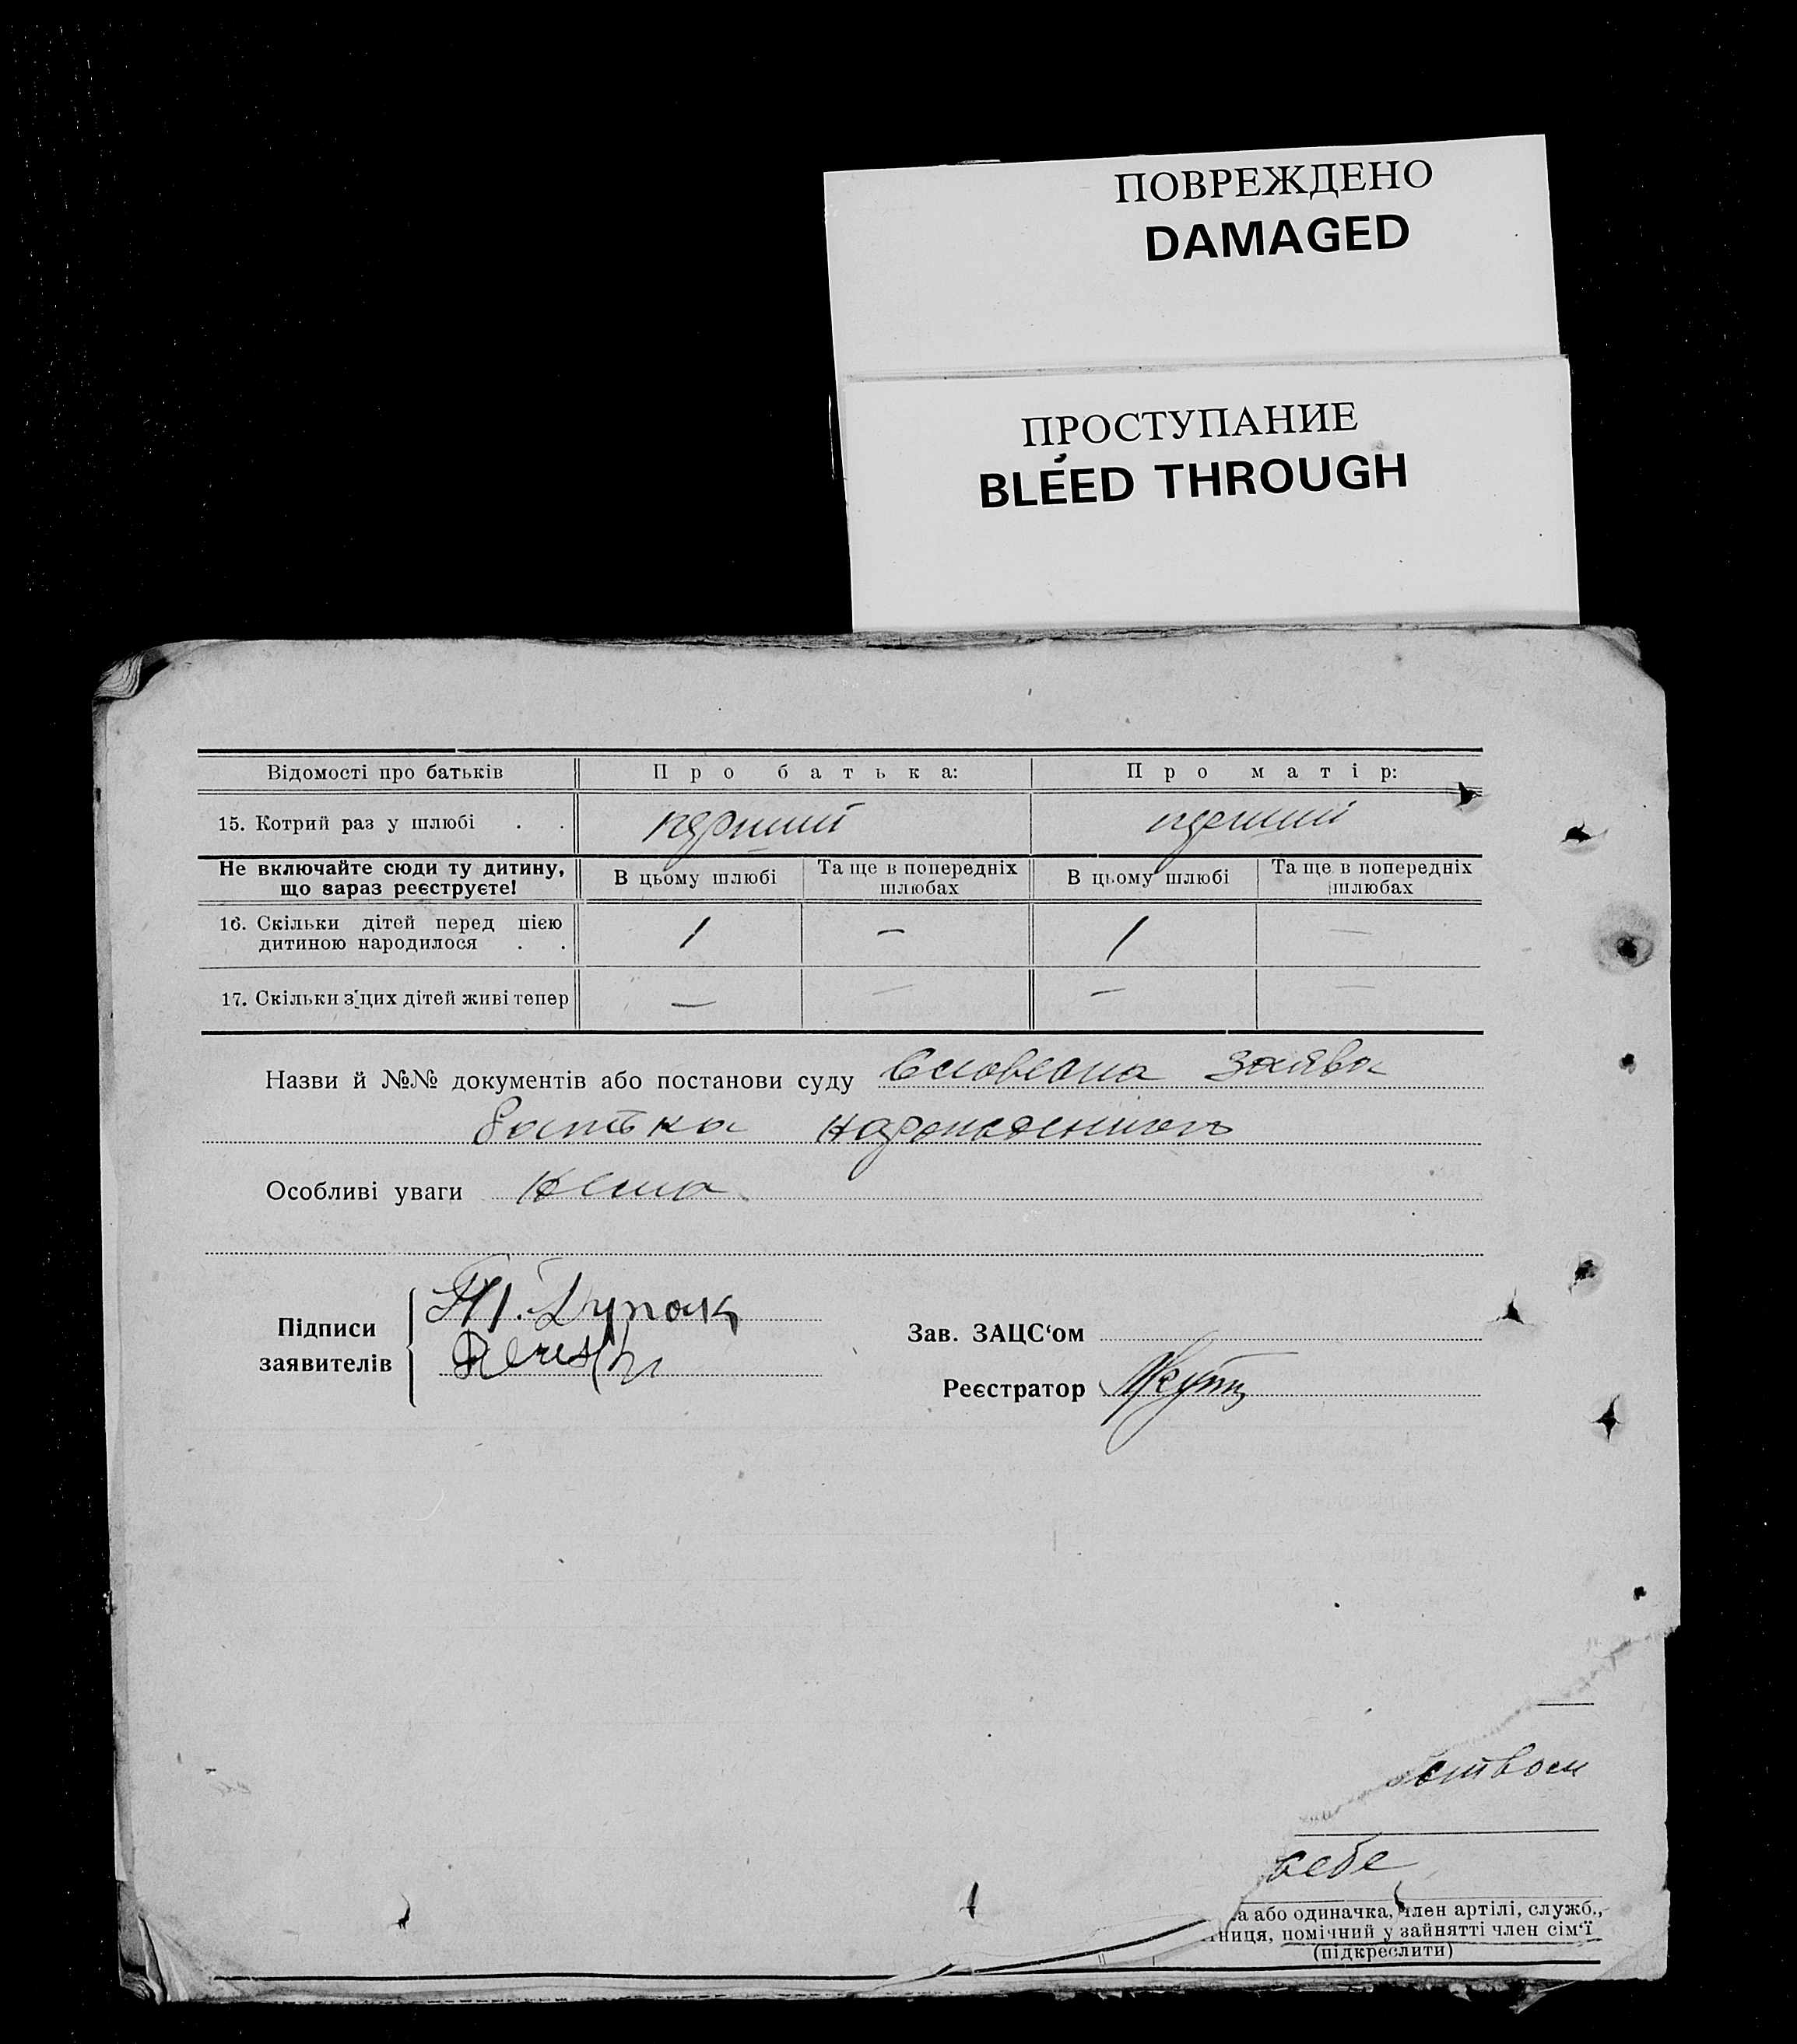 ПОВРЕЖДЕНО
DAMAGED
ПРОСТУПАНИЕ
BLEED THROUGH
Відомості про батьків Про батька: Про матір:
15. Котрий раз у шлюбі . . перший перший
Не включайте сюди ту дитину, що зараз реєструєте! В цьому шлюбі Та ще в попередніх шлюбах В цьому шлюбі Та ще в попередніх шлюбах
16. Скільки дітей перед цією дитиною народилося . . 1 — 1 —
17. Скільки з'цих дітей живі тепер — — — —
Назви й №№ документів або постанови суду Словесна заява
батька
Особливі уваги нема
Підписи
заявителів
Зав. ЗАЦС‘ом
Реєстратор
себе
а або одиначка, член артілі, служб.,
ниця, помічний у зайнятті член сім‘ї
(підкреслити)